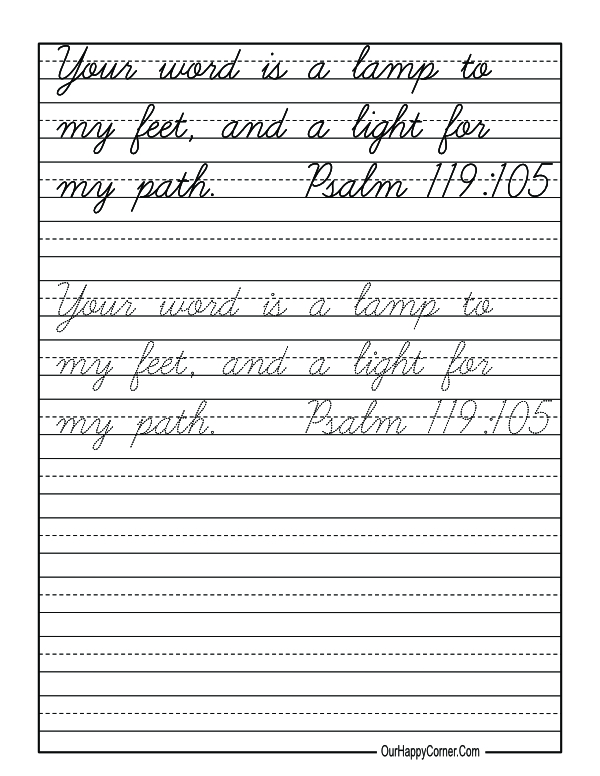 Your word is a lamp to
my feet, and a light for
my path. Psalm 119:105
Your word is a lamp to
my feet, and a light for
my path. Psalm 119:105
OurHappyCorner.Com